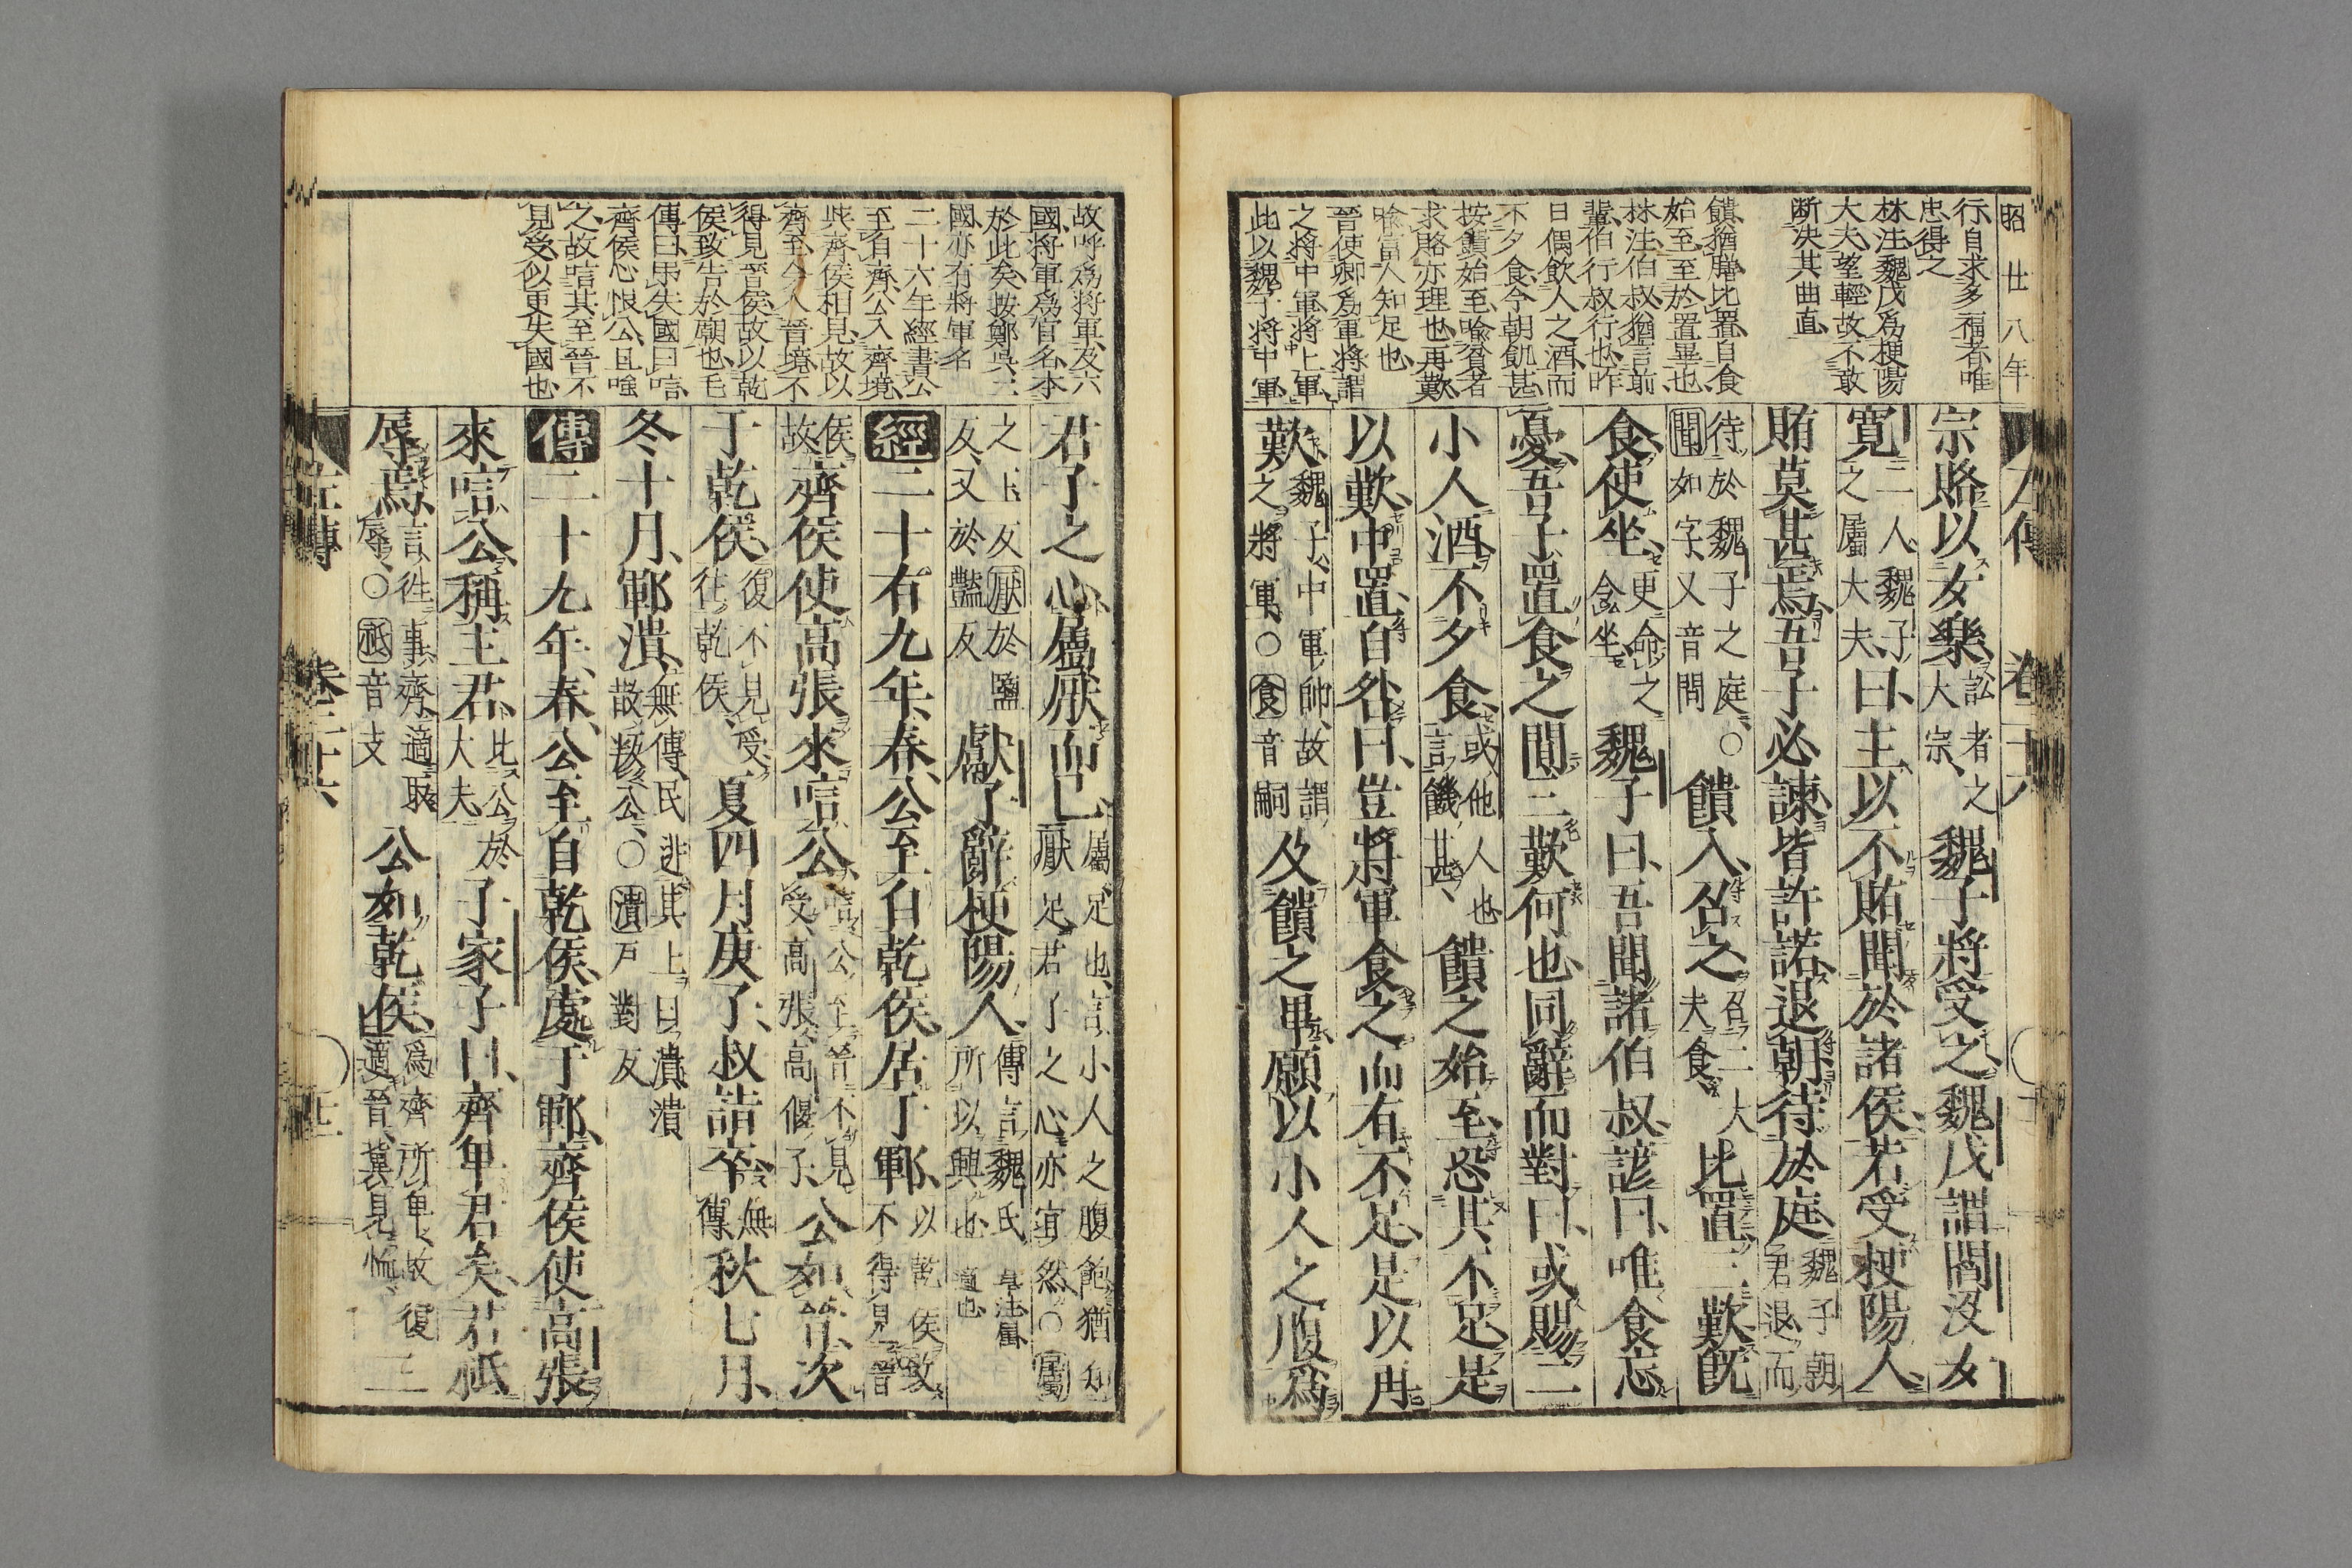 昭廿八年
行自求多福者唯
忠得之
林注魏戊爲梗陽
大夫望輕故不敢
断决其曲直
饋猶膳比置自食
始至至於置畢也
林注伯叔猶言前
輩伯行叔行也昨
日偶飲人之酒而
不夕食今朝飢甚
按饋始至喩貧者
求賂亦理也再歎
喩富人知足也
晉使卿爲軍將謂
之將中軍將上軍
此以魏子將中軍
宗賂以女樂訟者之大宗魏子將受之魏戊謂閻没女
寛二人魏子之屬大夫曰主以不賄聞於諸侯若受梗陽人
賄莫甚焉吾子必諫皆許諾退朝待於庭魏子朝君退而
待於魏子之庭○聞如字又音問饋入召之召二大夫食比置三歎既
食使坐更命之令坐魏子曰吾聞諸伯叔諺曰唯食忘
憂吾子置食之閒三歎何也同辭而對曰或賜二
小人酒不夕食或他人也言饑甚饋之始至恐其不足是
以歎中置自咎曰豈將軍食之而有不足是以再
歎魏子中軍帥故謂之將軍○食音嗣及饋之畢願以小人之腹爲
故呼爲將軍及六
國將軍爲官名本
於此矣按鄭呉二
國亦有將軍名
二十六年經書公
至自齊公入齊境
與齊侯相見故以
齊至今入晉境不
得見晉侯故以乾
侯致告於廟也毛
傳曰弔失國曰唁
齊侯心恨公且嗤
之故唁其至晉不
見受似更失國也
君子之心屬厭而已屬足也言小人之腹飽猶知厭足君子之心亦宜然○屬
之玉反厭於鹽反又於豔反獻子辭梗陽人傳言魏氏所以興也
經二十有九年春公至自乾侯居于鄆以乾侯致不得見晉
侯故齊侯使高張來唁公唁公至晉不見受高張高偃子公如晉次
于乾侯復不見受往乾侯夏四月庚子叔詣卒無傳秋七月
冬十月鄆潰無傳民逃其上曰潰潰故叛公○潰戸對反
傳二十九年春公至自乾侯處于鄆齊侯使高張
來唁公稱主君比公於大夫子家子曰齊卑君矣君祇
辱焉言往事齊適取辱○祇音支公如乾侯爲齊所卑故復適晉冀見恤三